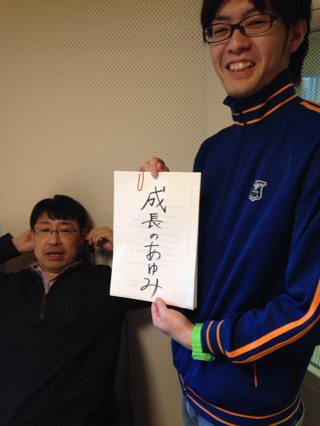 成長のあゆみ